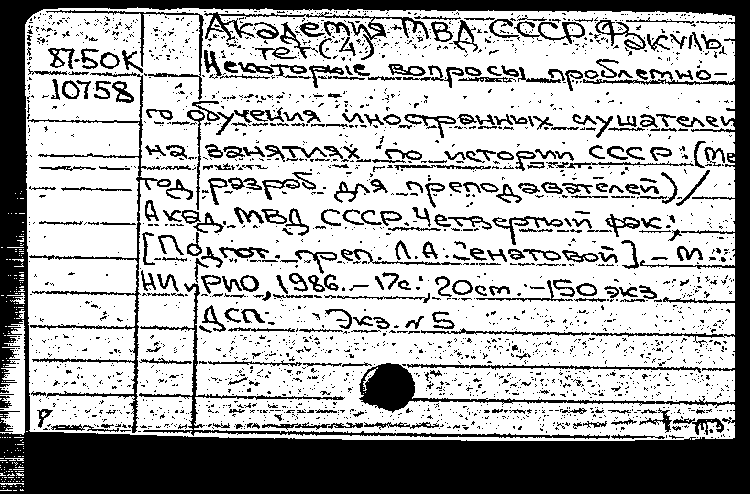 Академия МВД СССР. Факуль
тет (4)
87-50К
Некоторые вопросы проблемно-
10758
го обучения иностранных слушателей
на занятиях по истории СССР: (Ме
тод. разраб. для преподавателей) /
Акад. МВД СССР. Четвертый фак.;
[Подгот. преп. Л.А. Сенатовой]. - М.:
НИиРИО, 1986. - 17с.; 20 cm. - 150 экз.
ДСП. Экз. № 5
р